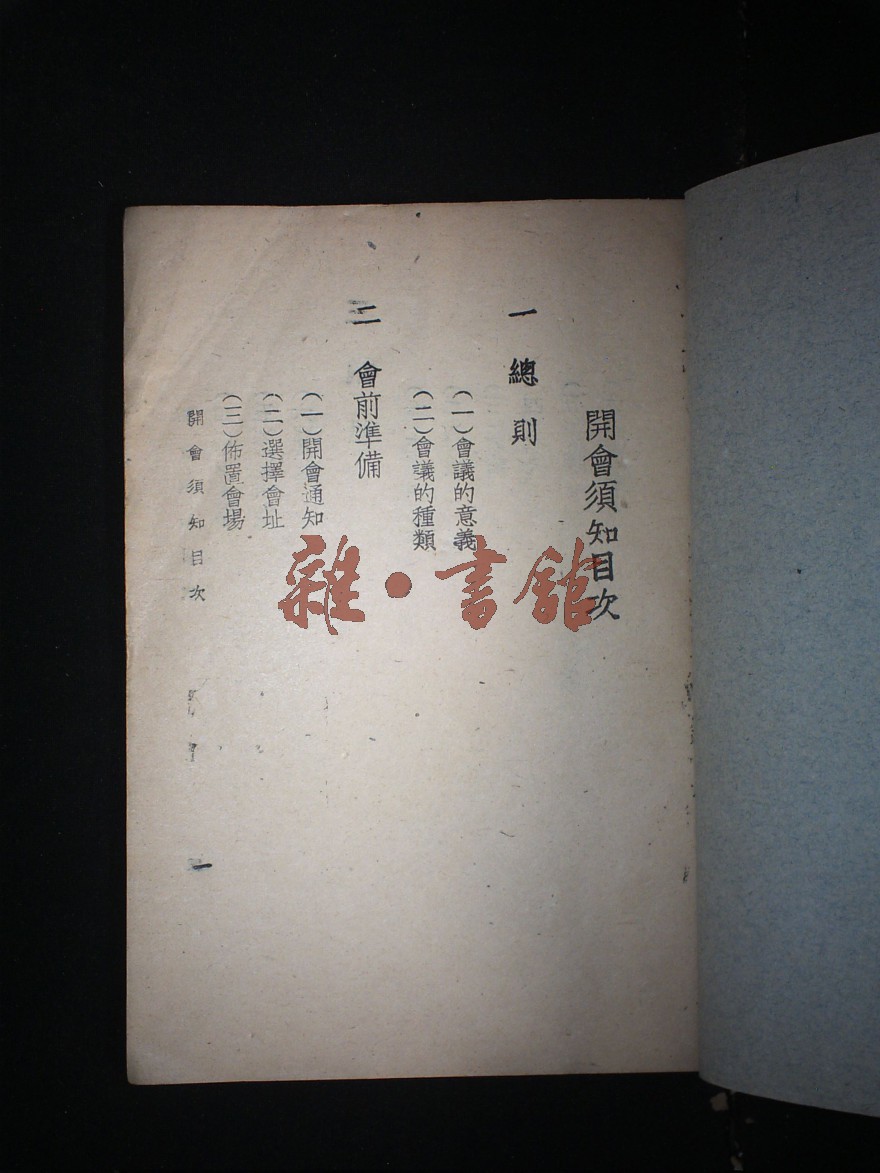 開會須知目次
一 總則
(一)會議的意義
(二)會議的種類
二 會前準備
(一)開會通知
(二)選擇會址
(三)佈置會場
開會須知目次 一
雜·書館